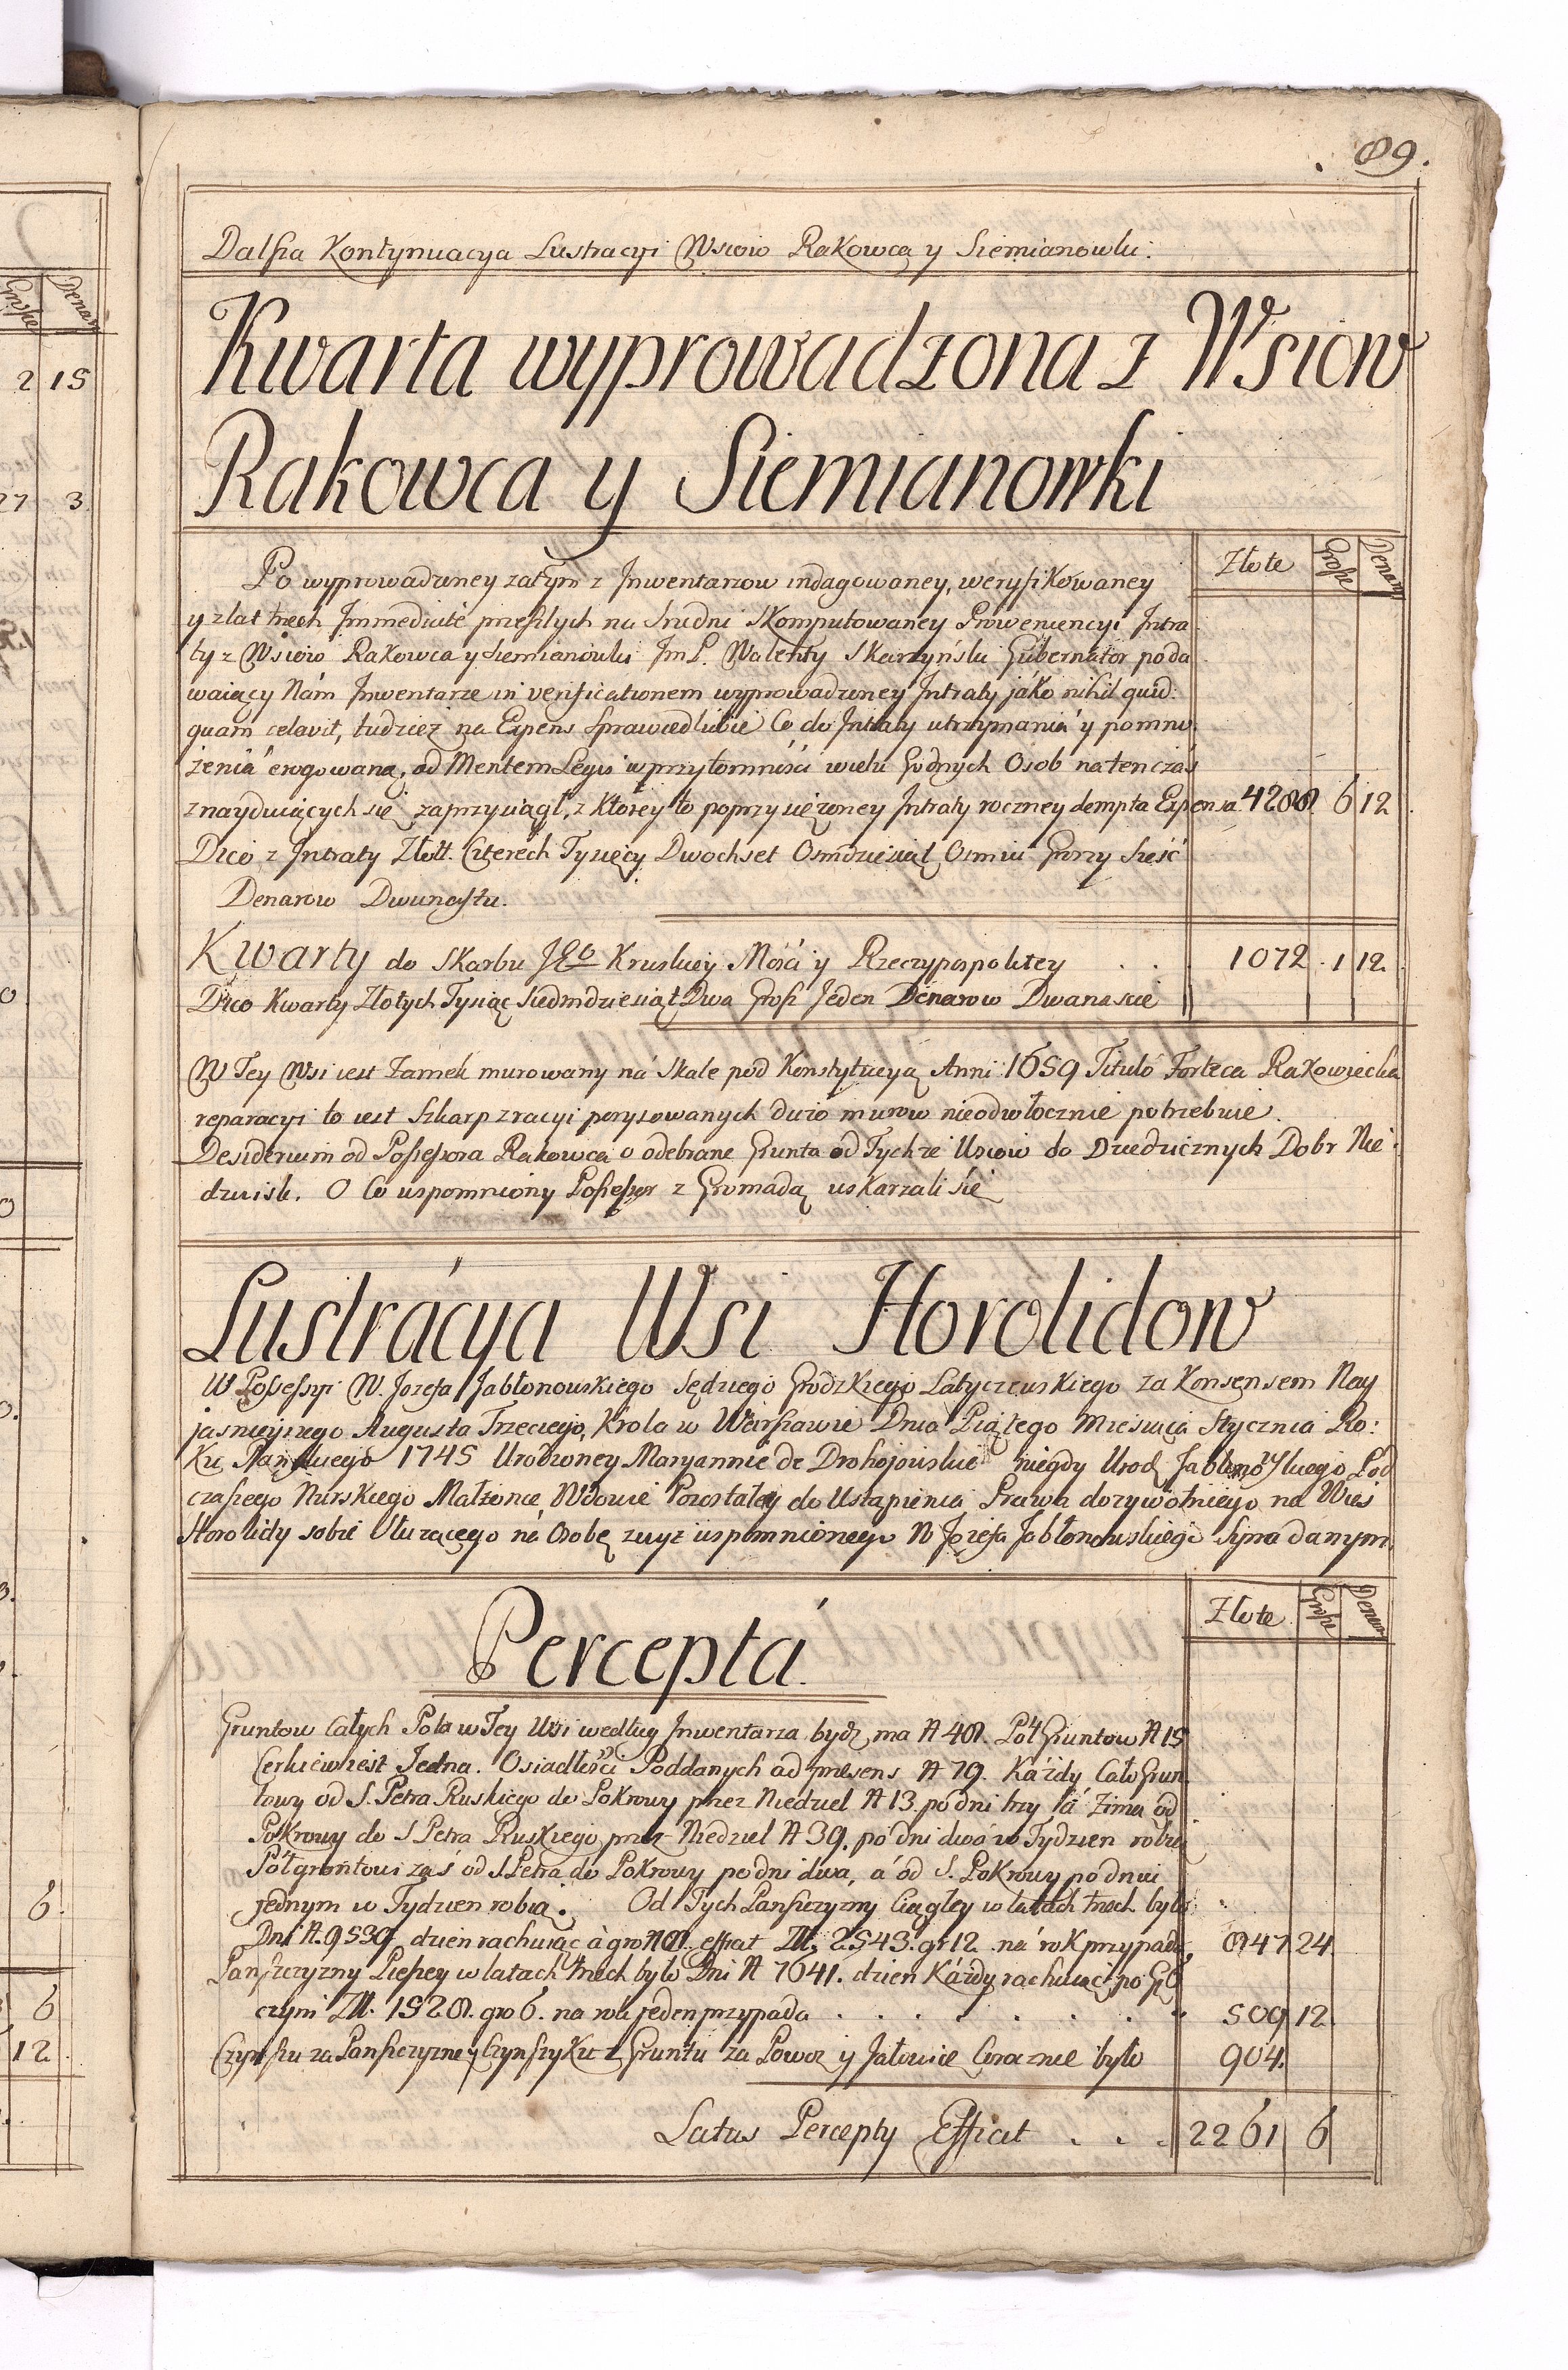 89.
Dalsza Kontynuacya Lustracyi Wsiow Rakowca y Siemianowki.
Kwarta wyprowadzona z Wsiow
Rakowca y Siemianowki
Złote Grosze Denary
Po wyprowadzoney zatym z Inwentarzow indagowaney, weryfikowaney
y z lat trzech Immediaté przeszłych na Srzedni Skomputowaney Prowenencyi Intra
ty z Wsiow Rakowca y Siemianowki Im P. Walenty Skarzyński Gubernator poda
waiący Nám Inwentarze in verificationem wyprowadzoney Intraty jáko nihil quid:
quam celavit, tudziez na Expens sprawiedliwie Co do Intraty utrzymania y pomno
żeniá erogowaną, ad Mentem Legis w przytomności wielu Godnych Osob na ten czás
znayduiących się zaprzysiągł, z Ktorey to poprzysiężoney Intraty roczney dempta Expensa 4288 6 12
Dico z Intraty Złott. Czterech Tysięcy Dwochset Osmdziesiąt Osmiu Grrzy Sześć
Denarow Dwunastu.
Kwarty do Skarbu JGo Krolwskiey Mości y Rzeczypospolitey . . 1072 . 1 12.
Dico Kwarty Złotych Tysiąc Siedmdziesiąt Dwa Grosz Jeden Denarow Dwanascie
W Tey Wsi iest Zamek murowany ná Skale pod Konstytucyą Anni 1659 Titulo Forteca Rakowiecka
reparacyi to iest Szkarp z racyi porysowanych dużo murow nieodwłocznie potrzebuie.
Desiderium od Possessora Rakowca o odebrane Grunta od Tychże Wsiow do Dziedzicznych Dobr Nie:
dzwisk. O Co wspomniony Possessor z Gromadą uskarzali się
Lustrácya Wsi Horolidow
W Possessyi W. Jozefa Jabłonowskiego Sędziego Grodzkiego Latyczewskiego za Konsensem Nay
jasnieyszego Augusta Trzeciego, Krola w Warszawie Dnia Piątego Miesiąca Stycznia Ro:
Ku Pańskiego 1745 Urodzoney Maryannie de Drohojowskie niegdy Urodz. Jabłonowskiego Pod
czaszego Nurskiego Małżonce, Wdowie Pozostałey do Ustąpienia Prawa dozywotniego na Wieś
Horolidy sobie słuzącego ná Osobę zwyż wspomnionego W Jozefa Jabłonowskiego Syna danym
Perceptá.
Złote Grosze Denar
Gruntow Całych Pola w Tey Wsi według Inwentarza bydz ma N 48. Puł Gruntow N 15
Cerkiew iest Jedna. Osiadłości Poddanych ad praesens N 79. Káżdy Cało Grun
towy od S. Petra Ruskiego do Pokrowy przez Niedziel N 13. po dni trzy, á Zimą od
Pokrowy do S Petra Ruskiego przez Niedziel N 39. po dni dwá w Tydzien robią
Półgrontowi zaś od S. Petra do Pokrowy po dni dwa, á od S. Pokrowy po dniu
jednym w Tydzien robią. Od Tych Panszczyzny Ciągłey w latach trzech było
Dni N. 9539 dzien rachuiąc à gro N 8. efficit Zł. 2543. gr 12. ná rok przypada, 847 24
Panszczyzny Pieszey w latach trzech było Dni N 7641. dzien Káżdy rachuiąc po Gr 6
czyni Zł. 1528. gro 6. na rok jeden przypada . . . . . . . 509 12
Czynszu za Panszczyznę y Czynszyku z Gruntu za Powoz y Jałowice Corocznie było 904.
Latus Percepty Efficit . . . 2261 6